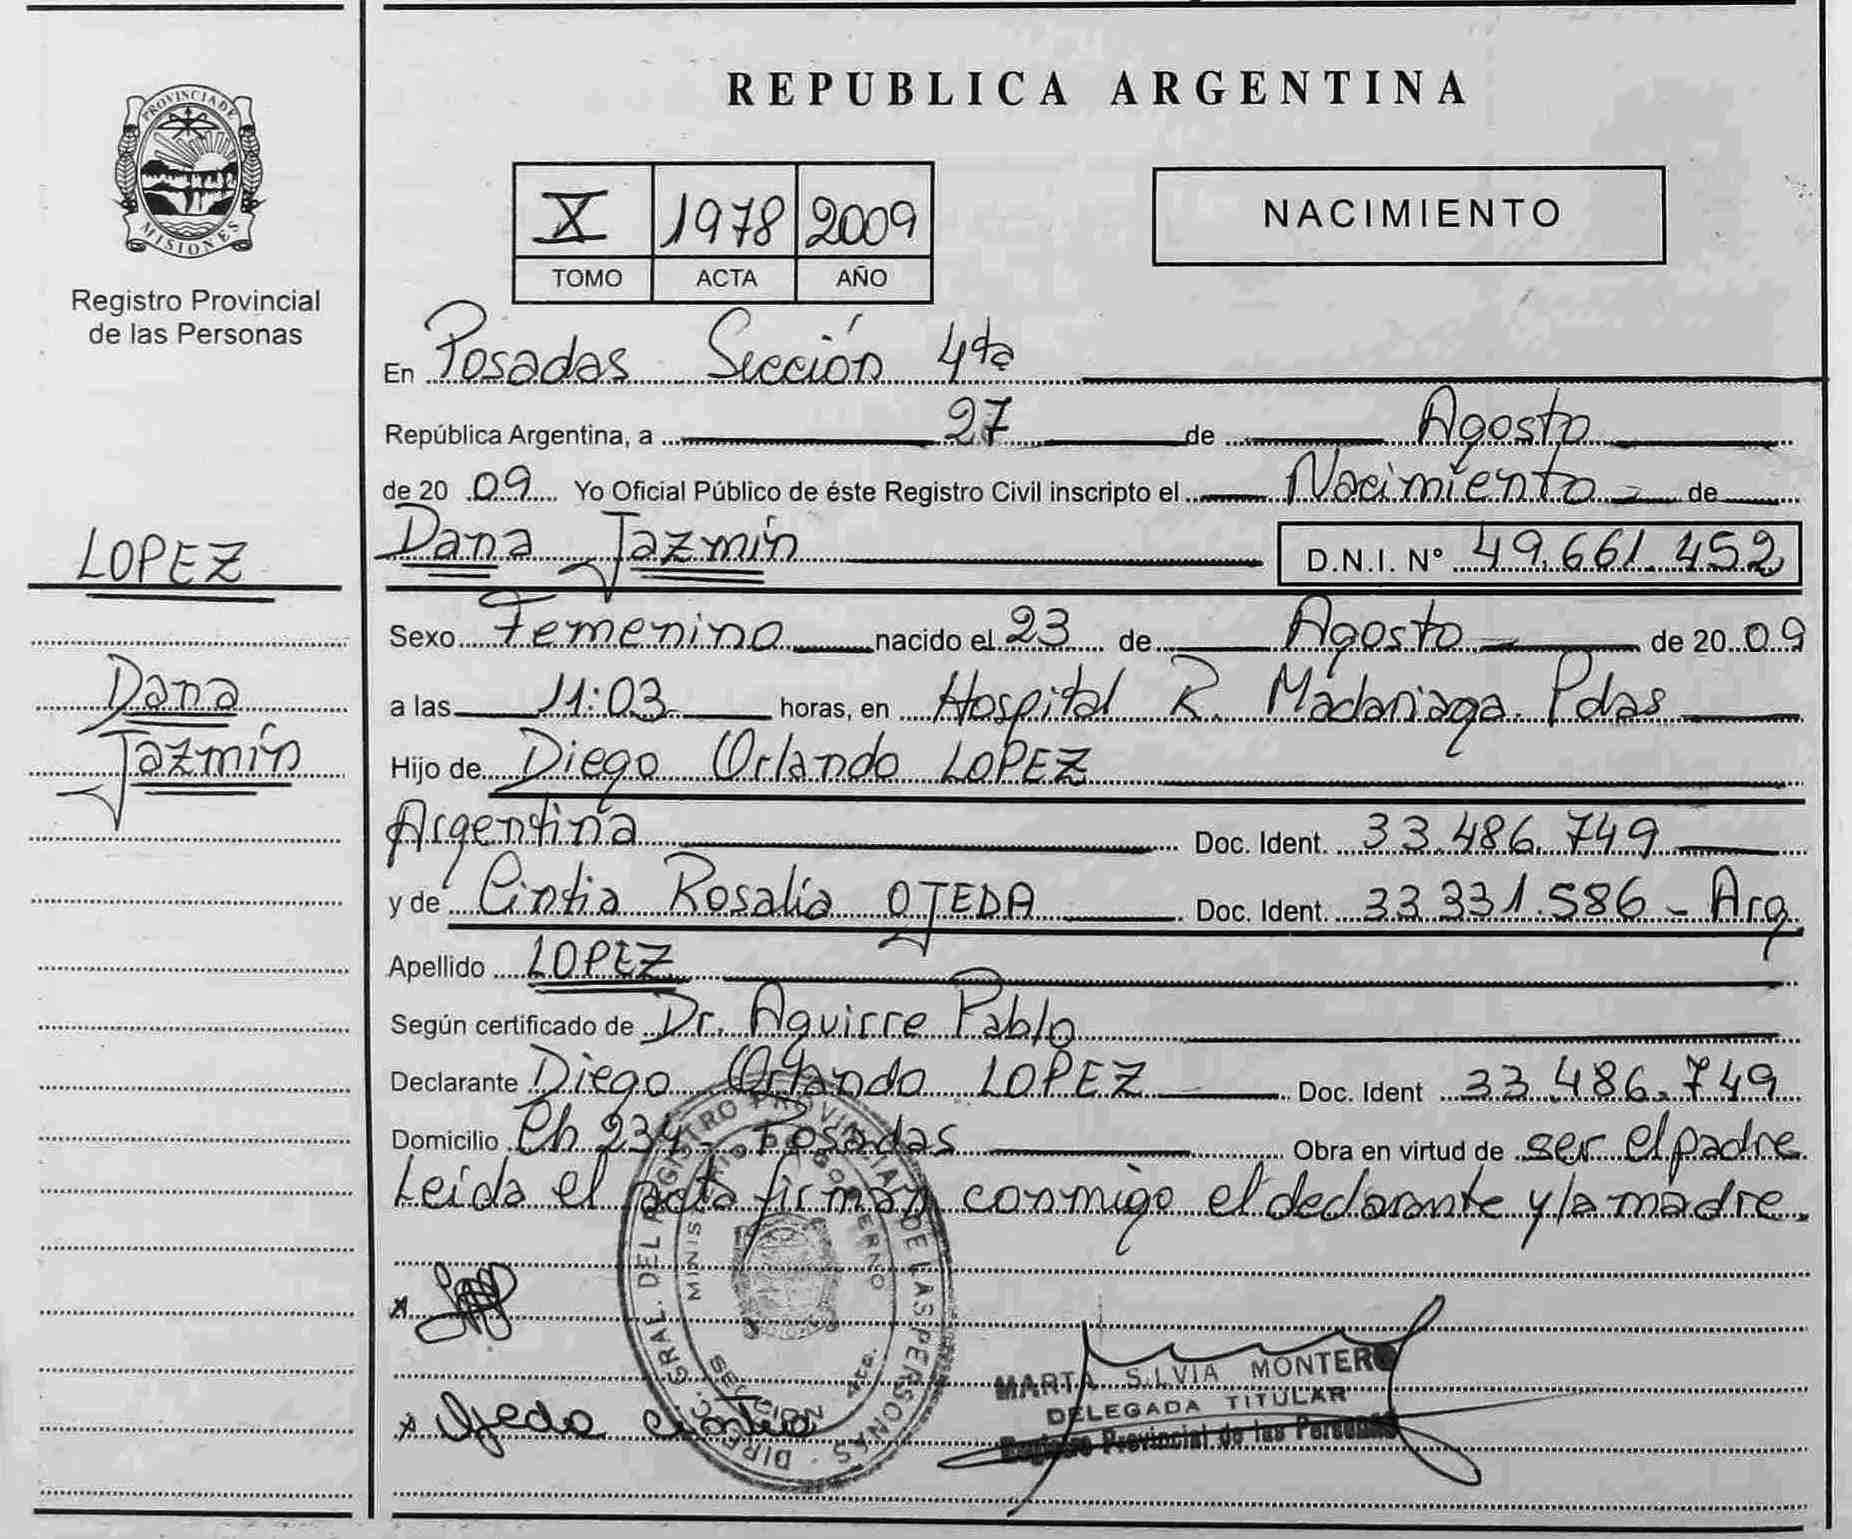 PROVINCIA DE
MISIONES
Registro Provincial
de las Personas
LOPEZ
Dana
Jazmín
REPUBLICA ARGENTINA
X 1978 2009
TOMO ACTA AÑO
NACIMIENTO
En Posadas Sección 4ta
República Argentina, a 27 de Agosto
de 2009 Yo Oficial Público de éste Registro Civil inscripto el Nacimiento de
Dana Jazmín D.N.I. Nº 49.661.452
Sexo Femenino nacido el 23 de Agosto de 2009
a las 11:03 horas, en Hospital R. Madariaga. Pdas
Hijo de Diego Orlando LOPEZ
Argentina Doc. Ident. 33.486.749
y de Cintia Rosalía OJEDA Doc. Ident. 33.331.586 - Arg.
Apellido LOPEZ
Según certificado de Dr. Aguirre Pablo
Declarante Diego Orlando LOPEZ Doc. Ident 33.486.749
Domicilio Ch 234 - Posadas Obra en virtud de ser el padre
Leída el acta firman conmigo el declarante y la madre.
DIRECC. GRAL. DEL REGISTRO PROVINCIAL DE LAS PERSONAS
MINISTERIO DE GOBIERNO
MISIONES
x
x Ojeda Cintia
MARTA SILVIA MONTERO
DELEGADA TITULAR
Registro Provincial de las Personas